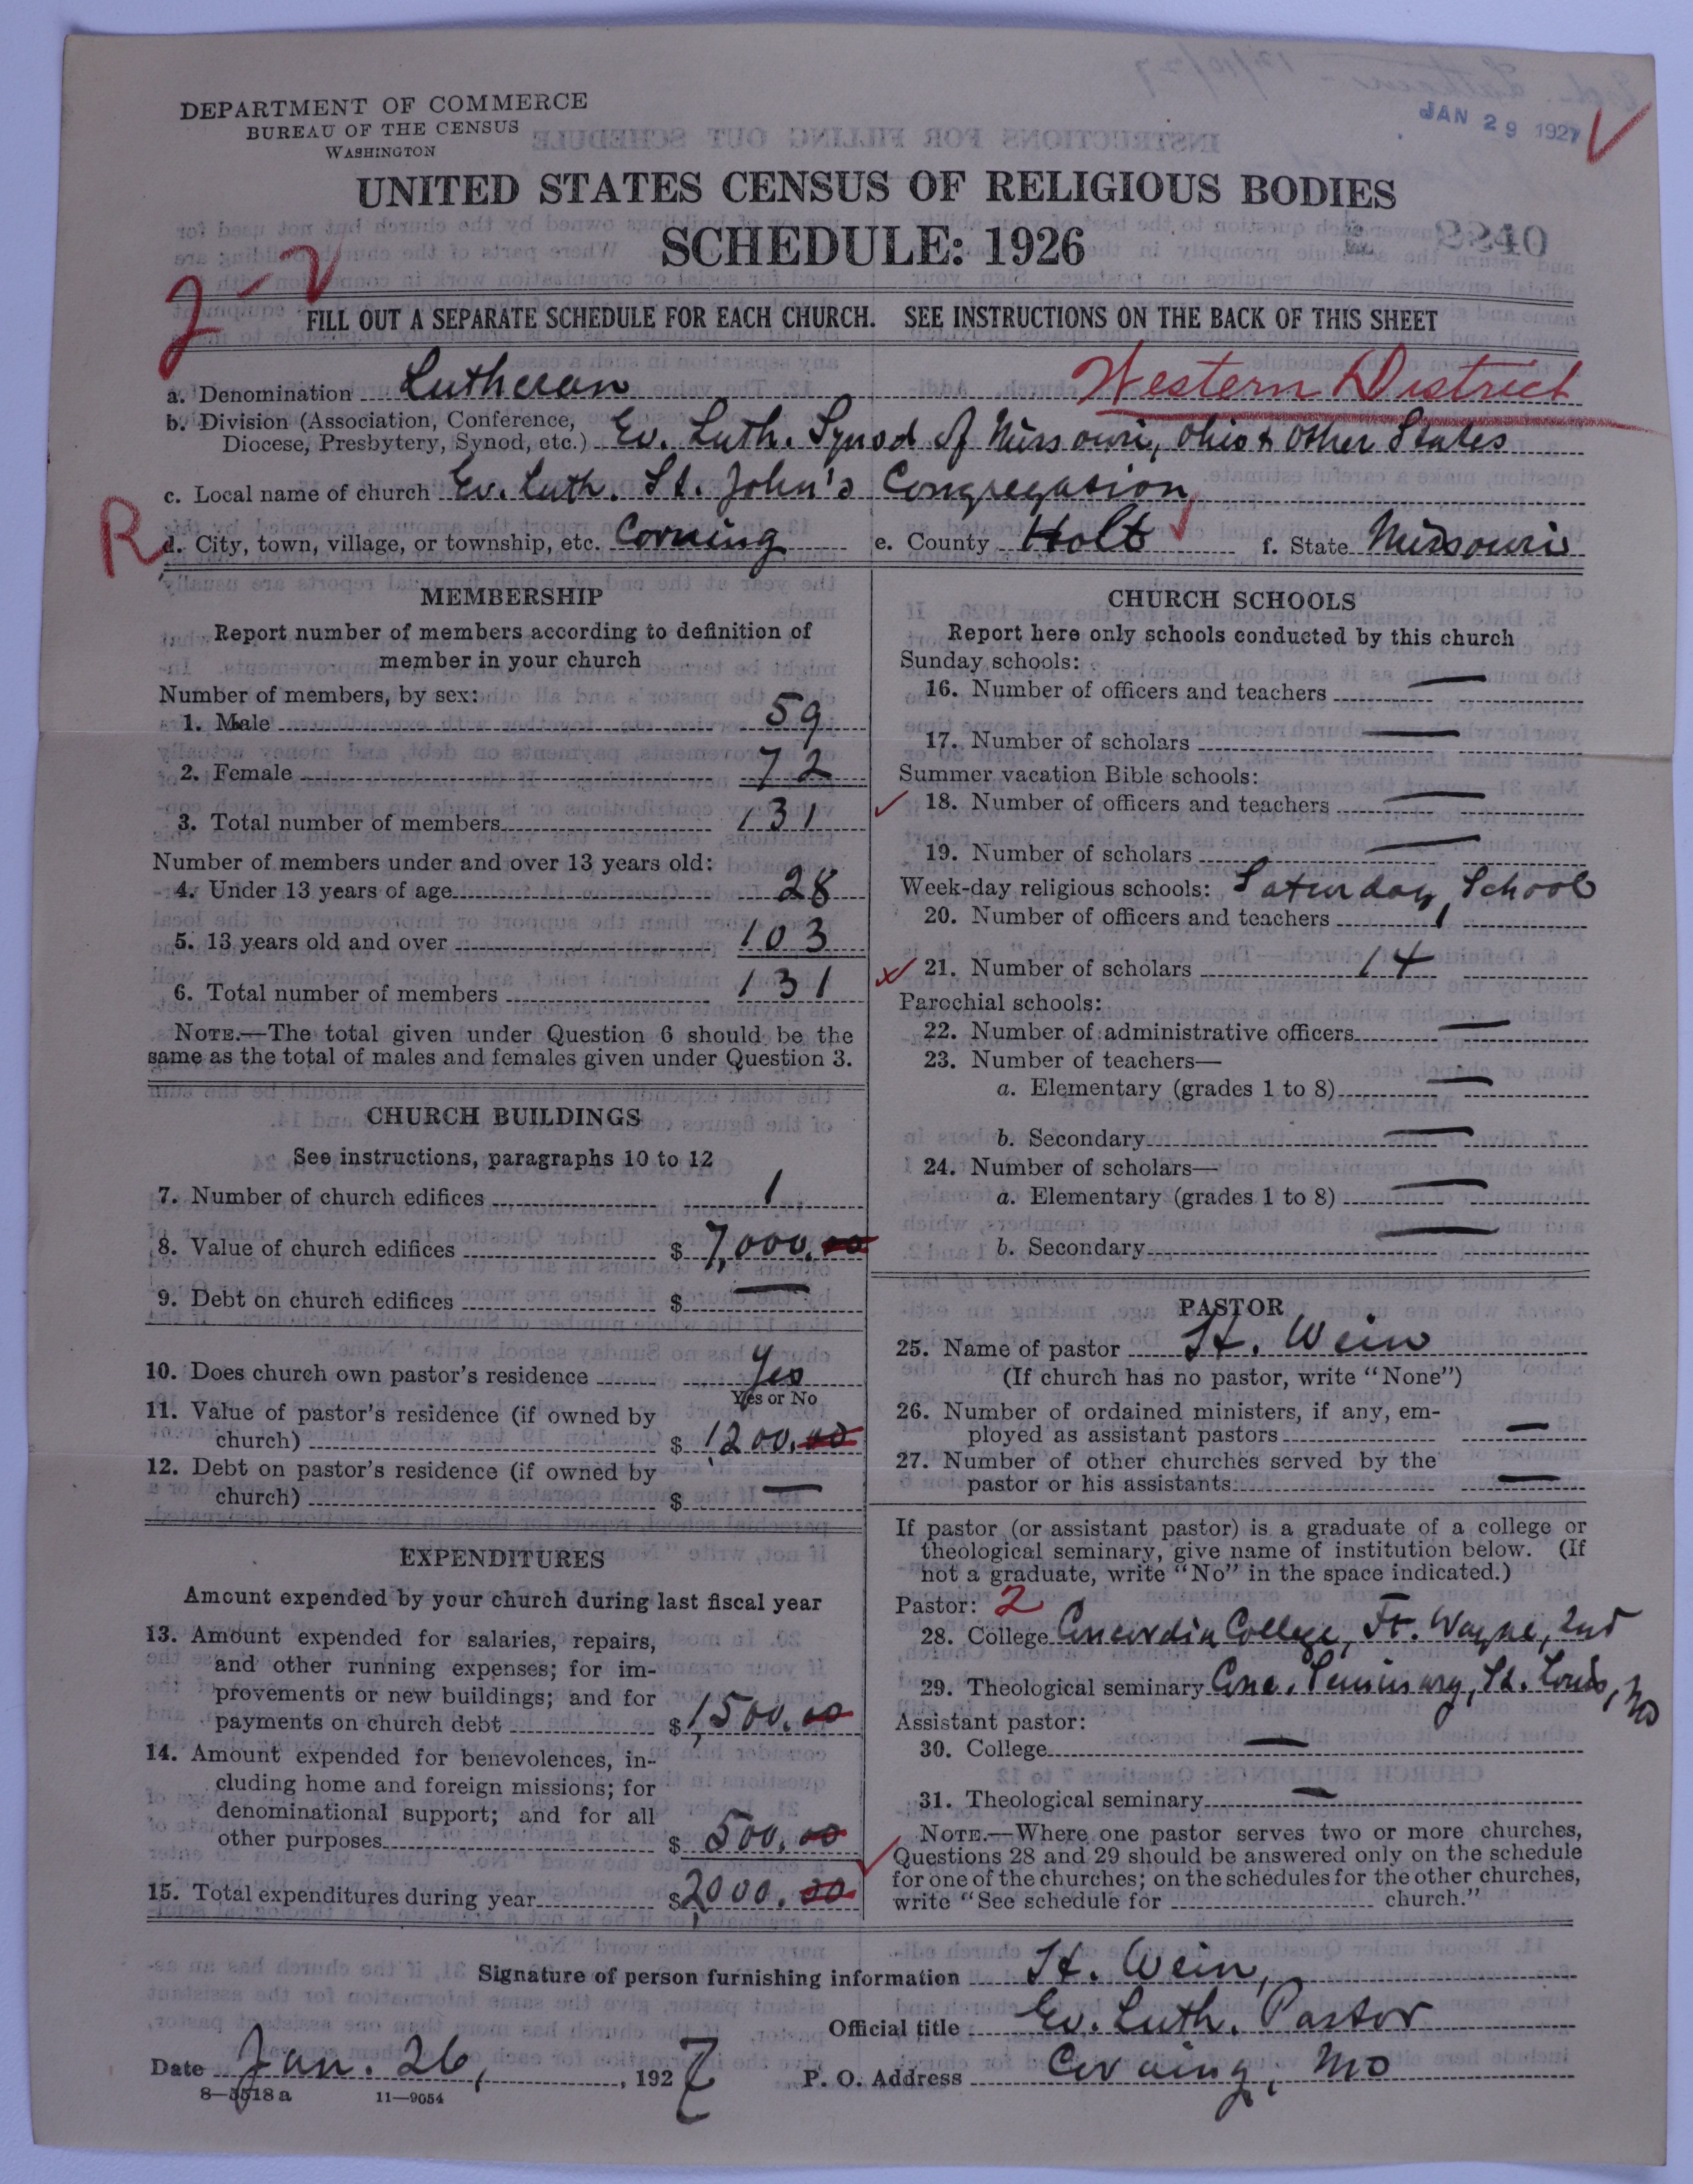 DEPARTMENT OF COMMERCE
BUREAU OF THE CENSUS
WASHINGTON
JAN 29 1927
UNITED STATES CENSUS OF RELIGIOUS BODIES
SCHEDULE: 1926
2240
FILL OUT A SEPARATE SCHEDULE FOR EACH CHURCH. SEE INSTRUCTIONS ON THE BACK OF THIS SHEET
a. Denomination Lutheran Western District
b. Division (Association, Conference,
Diocese, Presbytery, Synod, etc.) Ev. Luth. Synod of Missouri, Ohio & Other States
c. Local name of church Ev. Luth. St. John's Congregation
R d. City, town, village, or township, etc. Corning e. County Holt f. State Missouri
MEMBERSHIP
Report number of members according to definition of
member in your church
Number of members, by sex:
1. Male 59
2. Female 72
3. Total number of members 131
Number of members under and over 13 years old:
4. Under 13 years of age 28
5. 13 years old and over 103
6. Total number of members 131
NOTE.—The total given under Question 6 should be the
same as the total of males and females given under Question 3.
CHURCH BUILDINGS
See instructions, paragraphs 10 to 12
7. Number of church edifices 1
8. Value of church edifices $ 7,000.00
9. Debt on church edifices $ —
10. Does church own pastor's residence Yes
Yes or No
11. Value of pastor's residence (if owned by
church) $ 1,200.00
12. Debt on pastor's residence (if owned by
church) $ —
EXPENDITURES
Amount expended by your church during last fiscal year
13. Amount expended for salaries, repairs,
and other running expenses; for im-
provements or new buildings; and for
payments on church debt $ 1,500.00
14. Amount expended for benevolences, in-
cluding home and foreign missions; for
denominational support; and for all
other purposes $ 500.00
15. Total expenditures during year $ 2,000.00
CHURCH SCHOOLS
Report here only schools conducted by this church
Sunday schools:
16. Number of officers and teachers —
17. Number of scholars —
Summer vacation Bible schools:
18. Number of officers and teachers —
19. Number of scholars —
Week-day religious schools: Saturday School
20. Number of officers and teachers 1
21. Number of scholars 14
Parochial schools:
22. Number of administrative officers —
23. Number of teachers—
a. Elementary (grades 1 to 8) —
b. Secondary —
24. Number of scholars—
a. Elementary (grades 1 to 8) —
b. Secondary —
PASTOR
25. Name of pastor H. Wein
(If church has no pastor, write "None")
26. Number of ordained ministers, if any, em-
ployed as assistant pastors —
27. Number of other churches served by the
pastor or his assistants —
If pastor (or assistant pastor) is a graduate of a college or
theological seminary, give name of institution below. (If
not a graduate, write "No" in the space indicated.)
Pastor: 2
28. College Concordia College, Ft. Wayne, Ind
29. Theological seminary Conc. Seminary, St. Louis, Mo
Assistant pastor:
30. College —
31. Theological seminary —
NOTE.—Where one pastor serves two or more churches,
Questions 28 and 29 should be answered only on the schedule
for one of the churches; on the schedules for the other churches,
write "See schedule for church."
Signature of person furnishing information H. Wein,
Official title Ev. Luth. Pastor
Date Jan. 26, , 1927 P. O. Address Corning, Mo
8—5518 a 11—9054